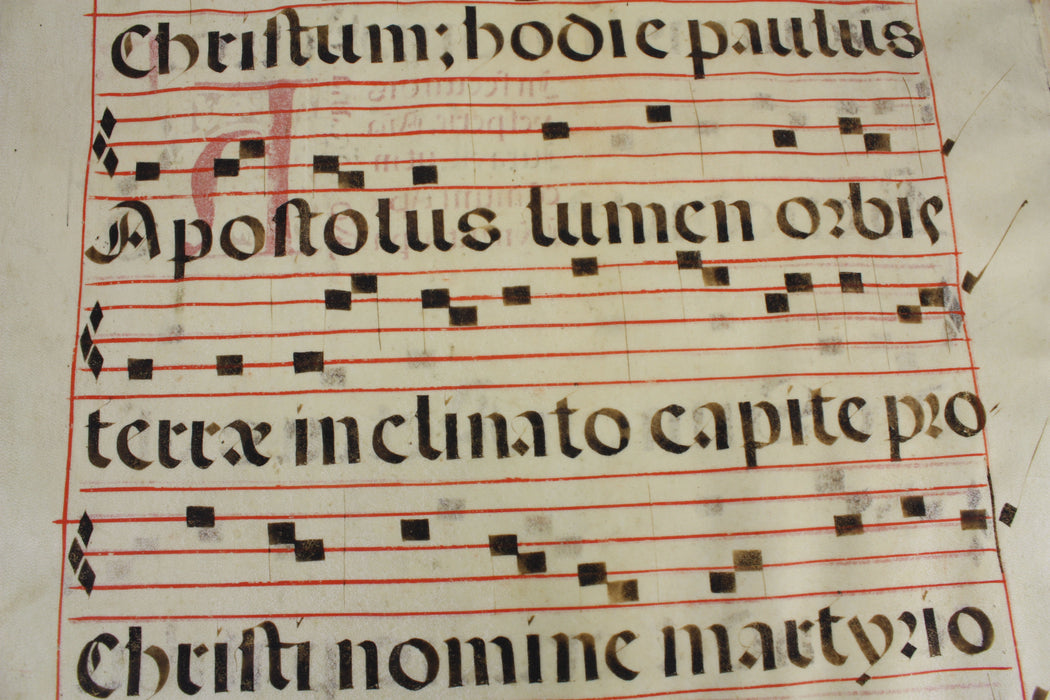 Christum; hodie paulus
Apostolus lumen orbis
terræ inclinato capite pro
Christi nomine martyrio